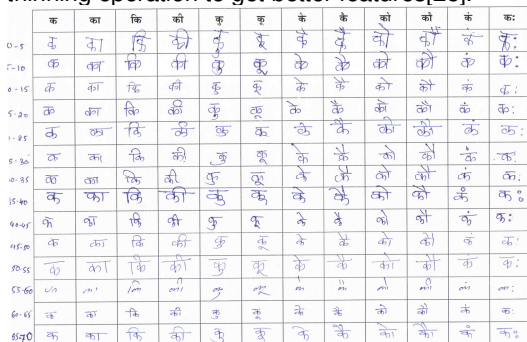 thinning operation to get better
क का कि की कु कू के कै को कौ कं कः
0-5 क का कि की कु कू के कै को कौ कं कः
5-10 क का कि की कु कू के कै को कौ कं कः
0-15 क का कि की कु कू के कै को कौ कं कः
5-20 क का कि की कु कू के कै को कौ कं कः
क का कि की कु कू के कै को कौ कं कः
5-30 क का कि की कु कू के कै को कौ कं कः
0-35 क का कि की कु कू के कै को कौ कं कः
35-40 क का कि की कु कू के कै को कौ कं कः
40-45 का कि की कु कू के कै को कौ कं कः
45-50 क का कि की कु कू के कै को कौ कं कः
50-55 क का कि की कु कू के कै को कौ कं कः
55-60
60-65 क का कि की कु कू के कै को कौ कं कः
65-70 क का कि की कु कू के कै को कौ कं कः